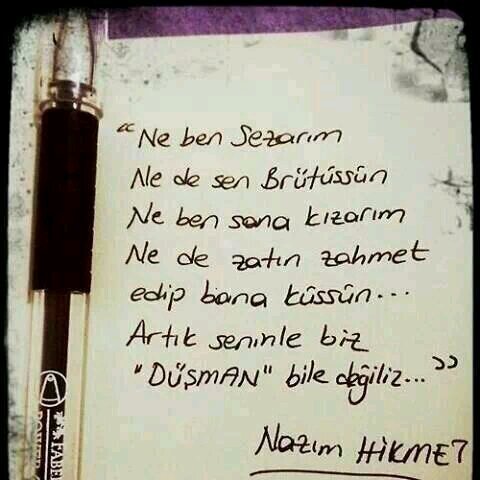 “Ne ben Sezarım
Ne de sen Brütüssün
Ne ben sana kızarım
Ne de zatın zahmet
edip bana küssün...
Artık seninle biz
"DÜŞMAN" bile değiliz...”
Nazım HİKMET
FABER